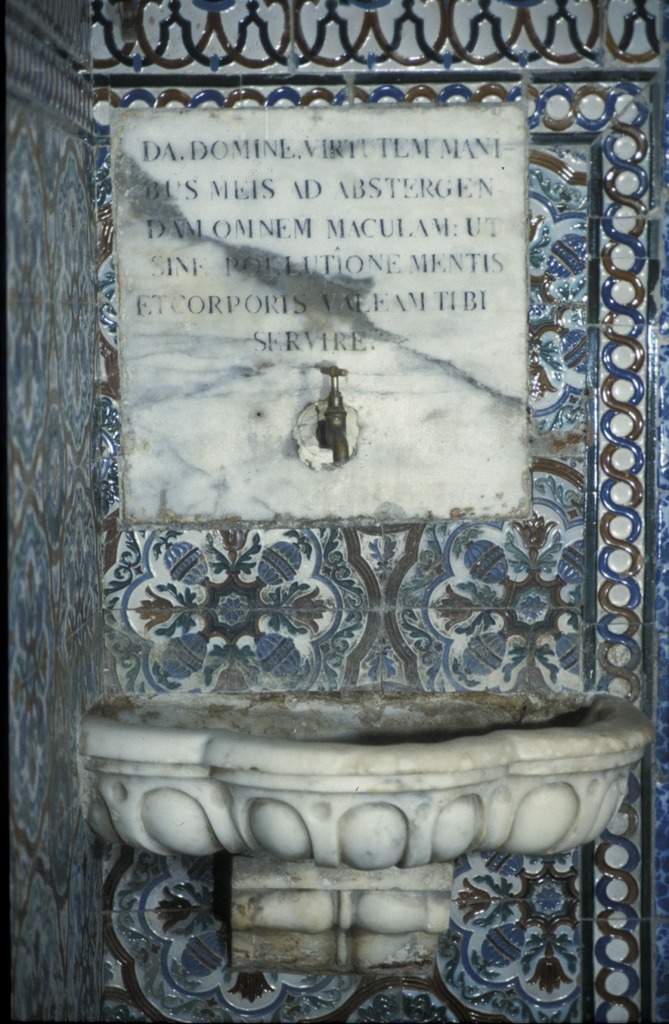 DA. DOMINE. VIRTUTEM MANI
BUS MEIS AD ABSTERGEN
DAM OMNEM MACULAM: UT
SINE POLLUTIONE MENTIS
ET CORPORIS VALEAM TIBI
SERVIRE.